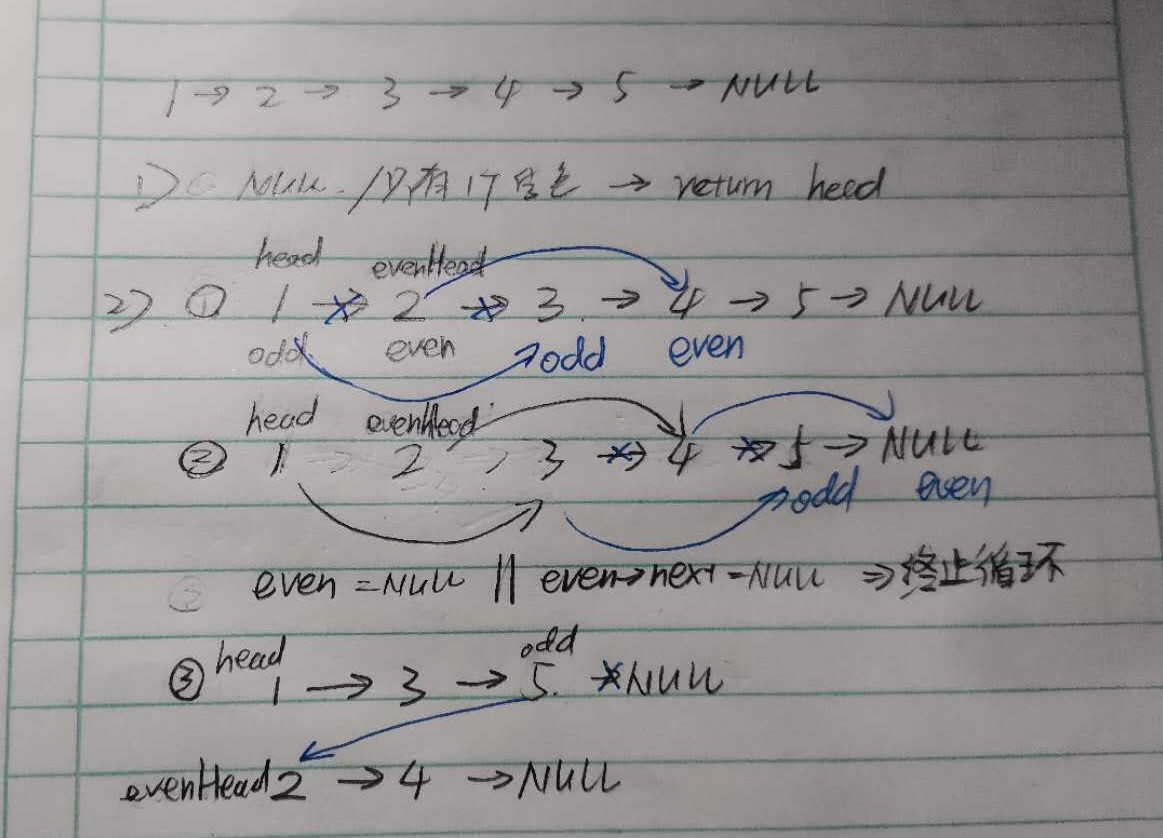 1 → 2 → 3 → 4 → 5 → NULL
1) NULL / 只有1个结点 → return head
head evenHead
2) ① 1 → 2 → 3 → 4 → 5 → NULL
odd even odd even
head evenHead
② 1 → 2 → 3 → 4 → 5 → NULL
odd even
even = NULL || even→next = NULL ⇒ 终止循环
head odd
③ 1 → 3 → 5 NULL
evenHead 2 → 4 → NULL